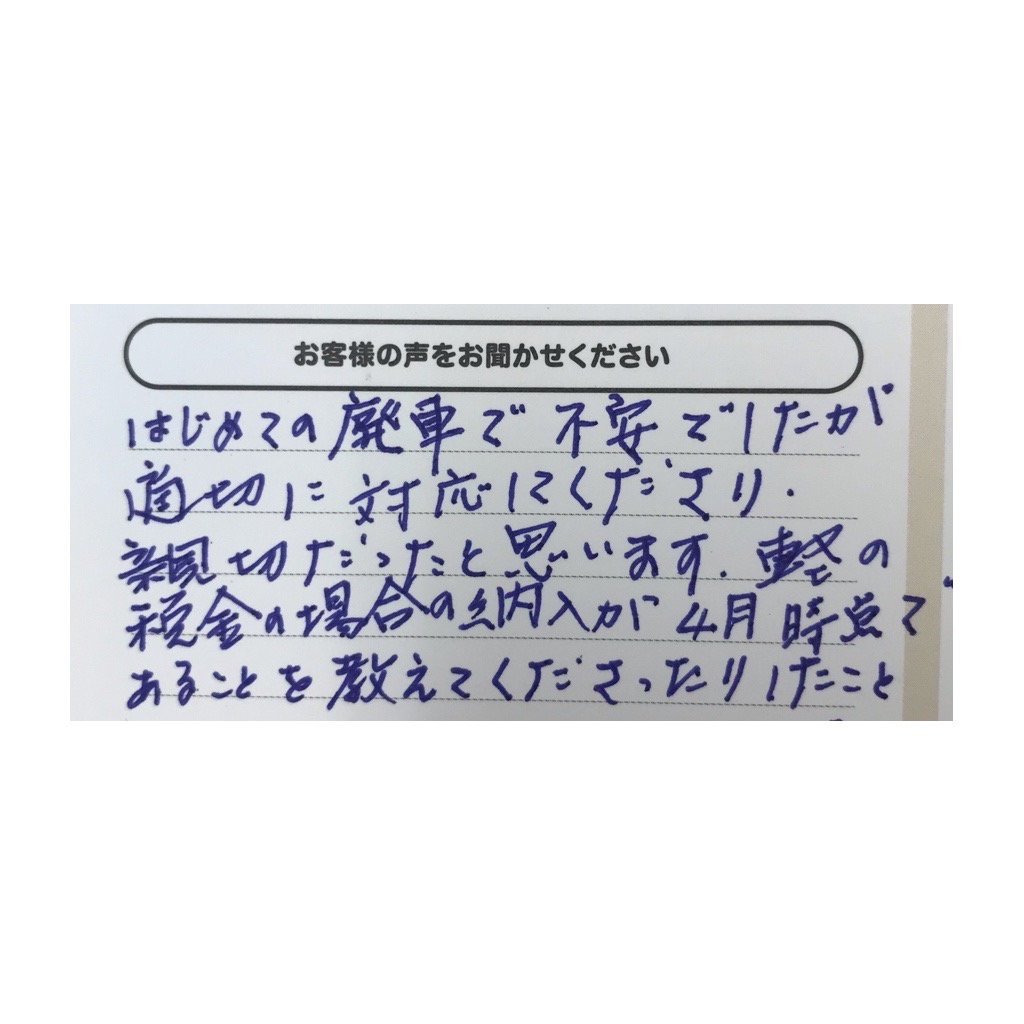 お客様の声をお聞かせください
はじめての廃車で不安でしたが
適切に対応してくださり.
親切だったと思います.軽の
税金の場合の納入が4月時点で
あることを教えてくださったりしたこと